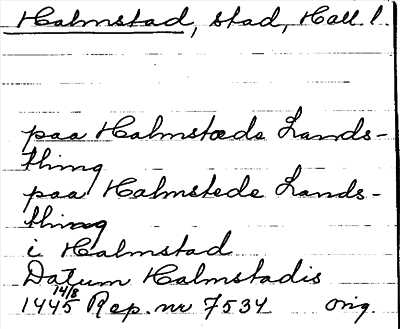 Halmstad, stad, Hall l.
paa Halmstæde Lands-
thing
paa Halmstede Lands-
thing
i Halmstad
Datum Halmstadis
1445 14/8 Rep. nr 7534 orig.